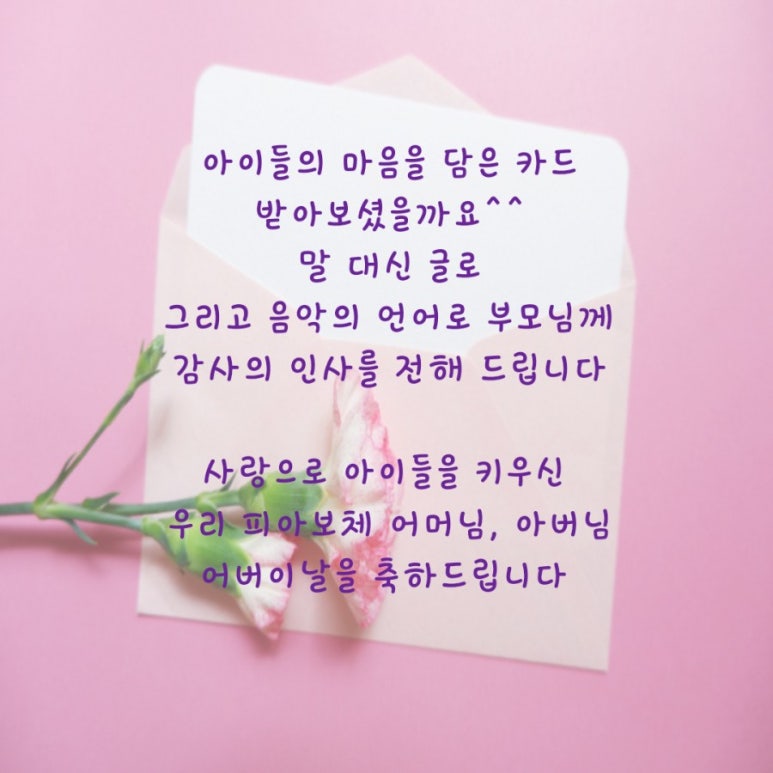 아이들의 마음을 담은 카드
받아보셨을까요^^
말 대신 글로
그리고 음악의 언어로 부모님께
감사의 인사를 전해 드립니다
사랑으로 아이들을 키우신
우리 피아보체 어머님, 아버님
어버이날을 축하드립니다